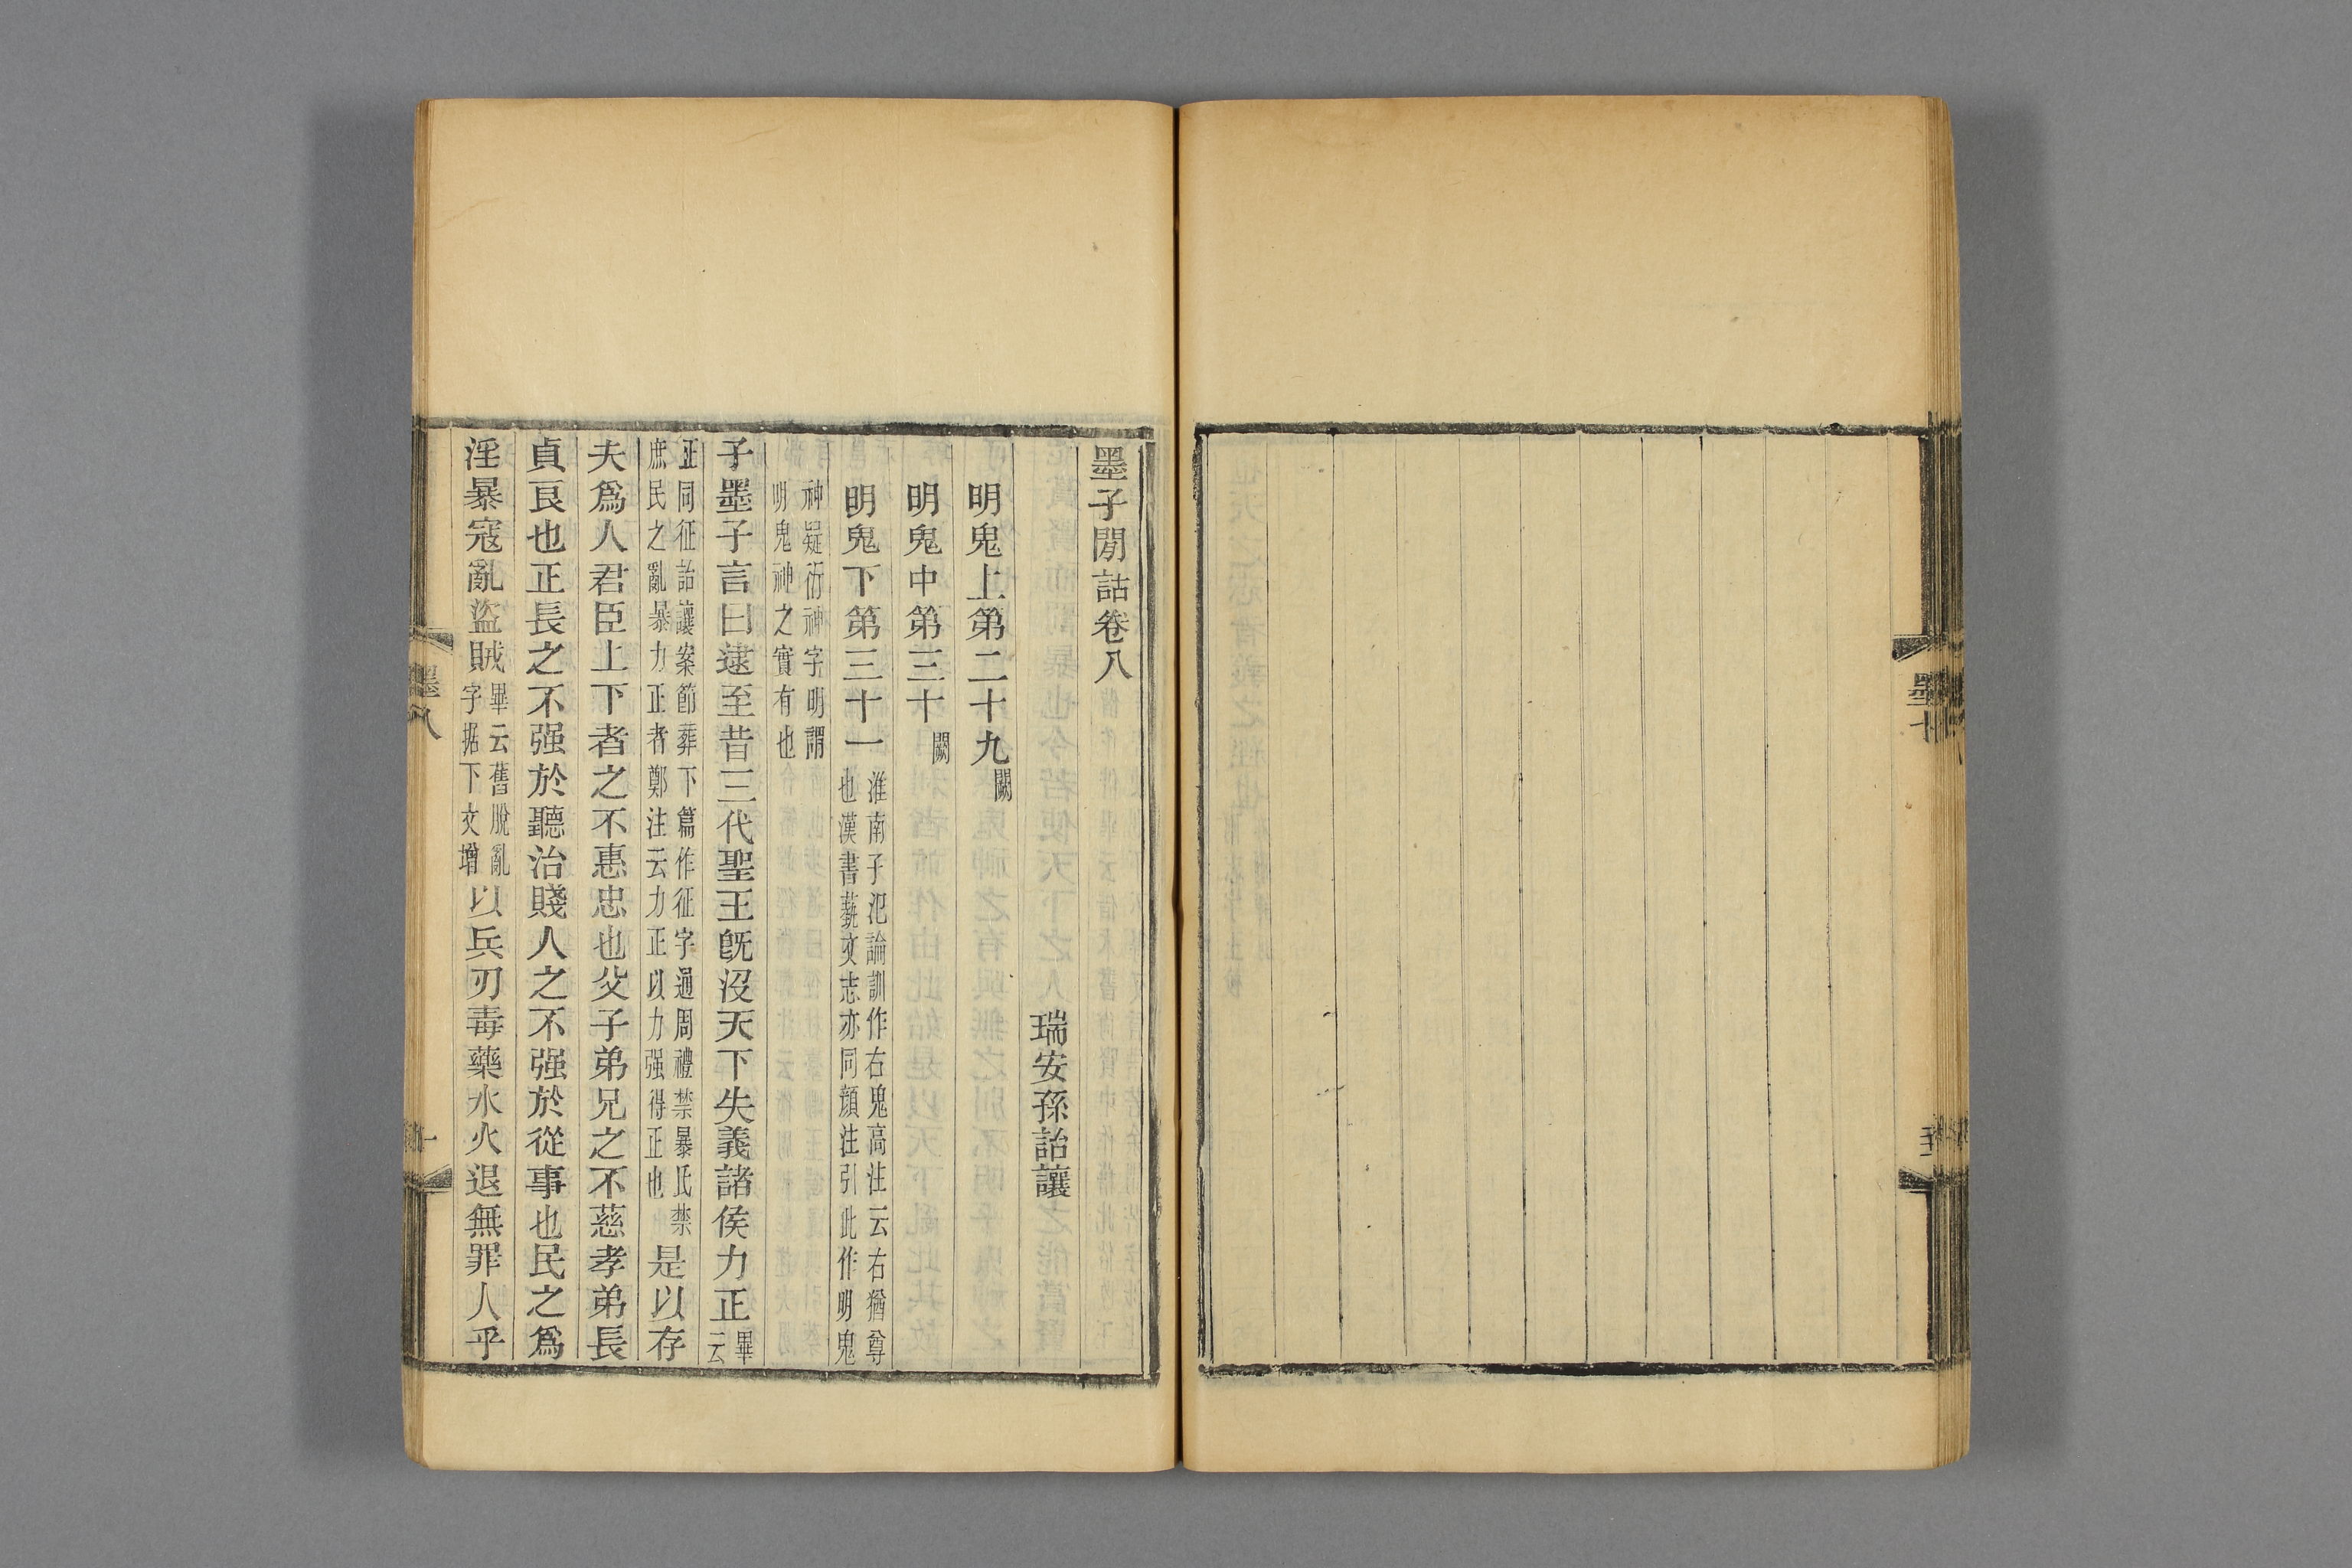 墨子閒詁卷八
瑞安孫詒讓
明鬼上第二十九闕
明鬼中第三十闕
明鬼下第三十一淮南子氾論訓作右鬼高注云右猶尊也漢書蓺文志亦同顔注引此作明鬼
神疑衍神字明謂明鬼神之實有也
子墨子言曰逮至昔三代聖王旣沒天下失義諸侯力正畢云
正同征詒讓案節葬下篇作征字通周禮禁暴氏禁庶民之亂暴力正者鄭注云力正以力强得正也是以存
夫爲人君臣上下者之不惠忠也父子弟兄之不慈孝弟長
貞良也正長之不强於聽治賤人之不强於從事也民之爲
淫暴寇亂盜賊畢云舊脫亂字据下文增以兵刃毒藥水火退無罪人乎
墨八
一